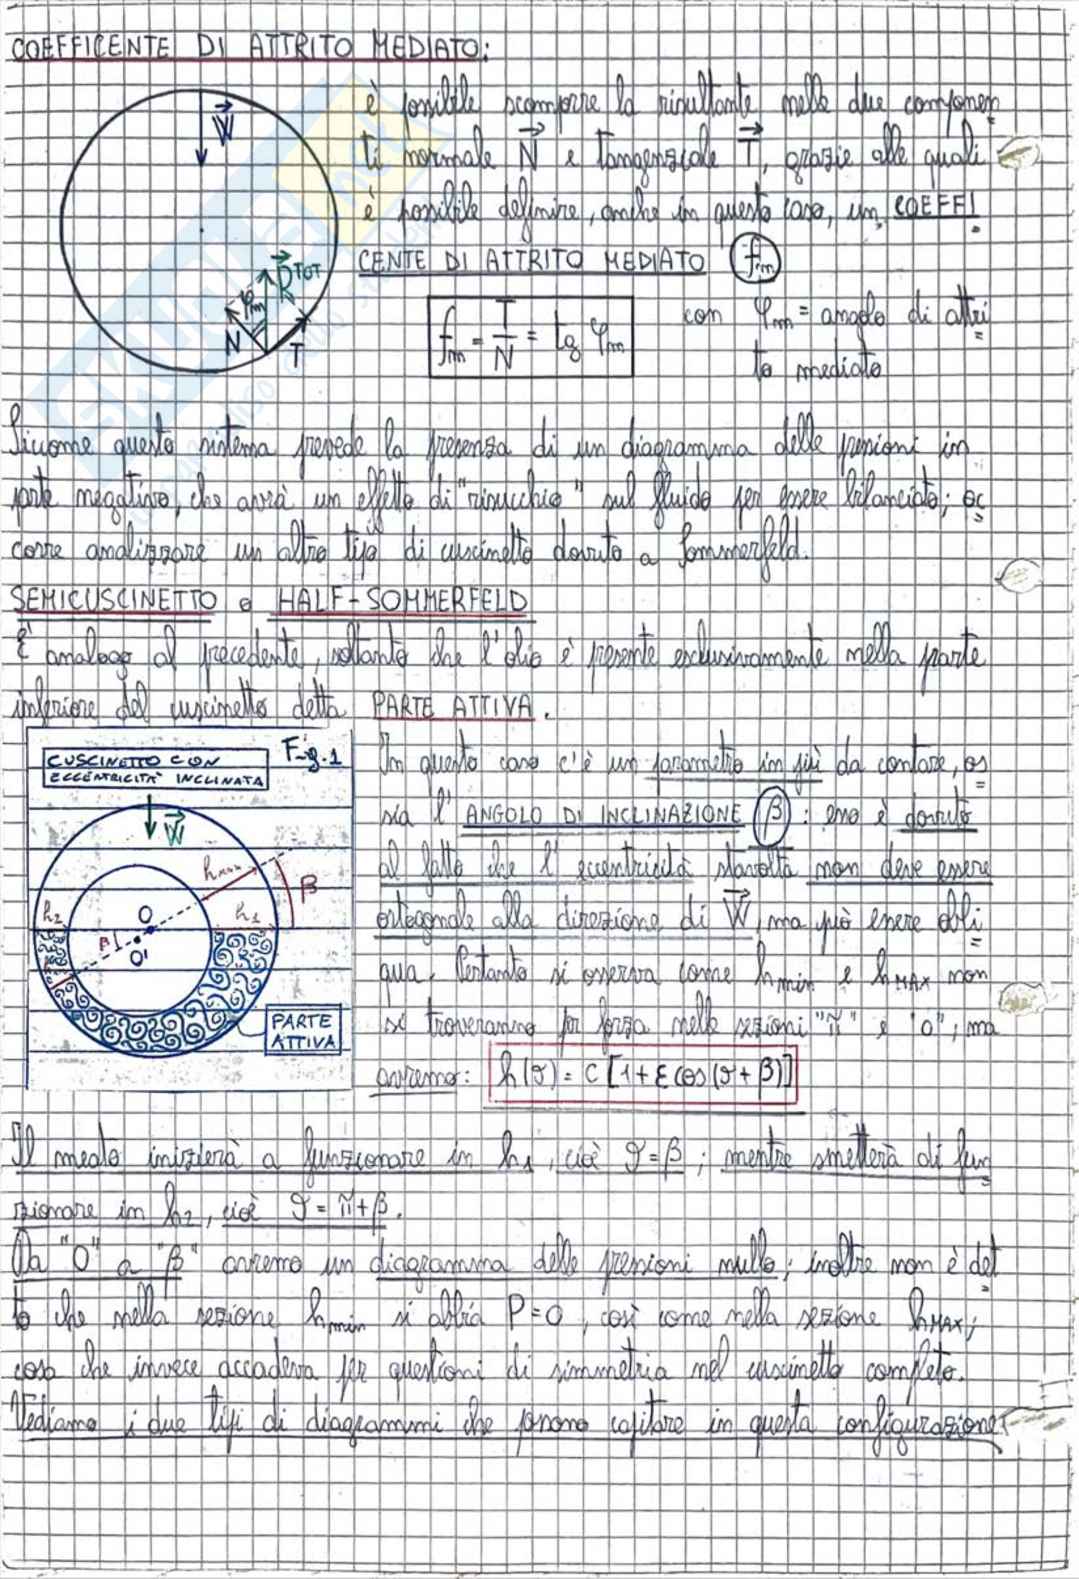 COEFFICENTE DI ATTRITO MEDIATO:
W
è possibile scomporre la risultante nelle due componen
ti normale N e tangenziale T, grazie alle quali
è possibile definire, anche in questo caso, un COEFFI
CENTE DI ATTRITO MEDIATO fm
R TOT
φm
N
T
fm = T/N = tg φm
con φm = angolo di attri
to mediato
Siccome questo sistema prevede la presenza di un diagramma delle pressioni in
parte negativo, che avrà un effetto di "risucchio" sul fluido per essere bilanciato; oc
corre analizzare un altro tipo di cuscinetto dovuto a Sommerfeld.
SEMICUSCINETTO o HALF-SOMMERFELD
È analogo al precedente, soltanto che l'olio è presente esclusivamente nella parte
inferiore del cuscinetto detta PARTE ATTIVA.
CUSCINETTO CON
ECCENTRICITA' INCLINATA
Fig.1
W
hmax
β
h2
h1
O
β
O'
PARTE
ATTIVA
In questo caso c'è un parametro in più da contare, os
sia l'ANGOLO DI INCLINAZIONE β: esso è dovuto
al fatto che l'eccentricità stavolta non deve essere
ortogonale alla direzione di W, ma può essere obli
qua. Pertanto si osserva come hmin e hMAX non
si troveranno per forza nelle sezioni "π" e "0", ma
avremo: h(ϑ) = C [1+ε cos(ϑ+β)]
Il meato inizierà a funzionare in h1, cioè ϑ=β; mentre smetterà di fun
zionare in h2, cioè ϑ = π+β.
Da "0" a "β" avremo un diagramma delle pressioni nullo; inoltre non è det
to che nella sezione hmin si abbia P=0, così come nella sezione hMAX;
cosa che invece accadeva per questioni di simmetria nel cuscinetto completo.
Vediamo i due tipi di diagrammi che possono capitare in questa configurazione